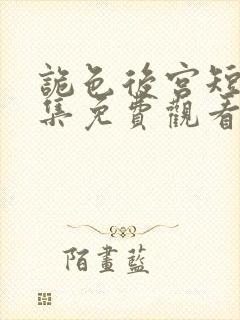 詭色後宮短
集免費觀看
陌畫藍